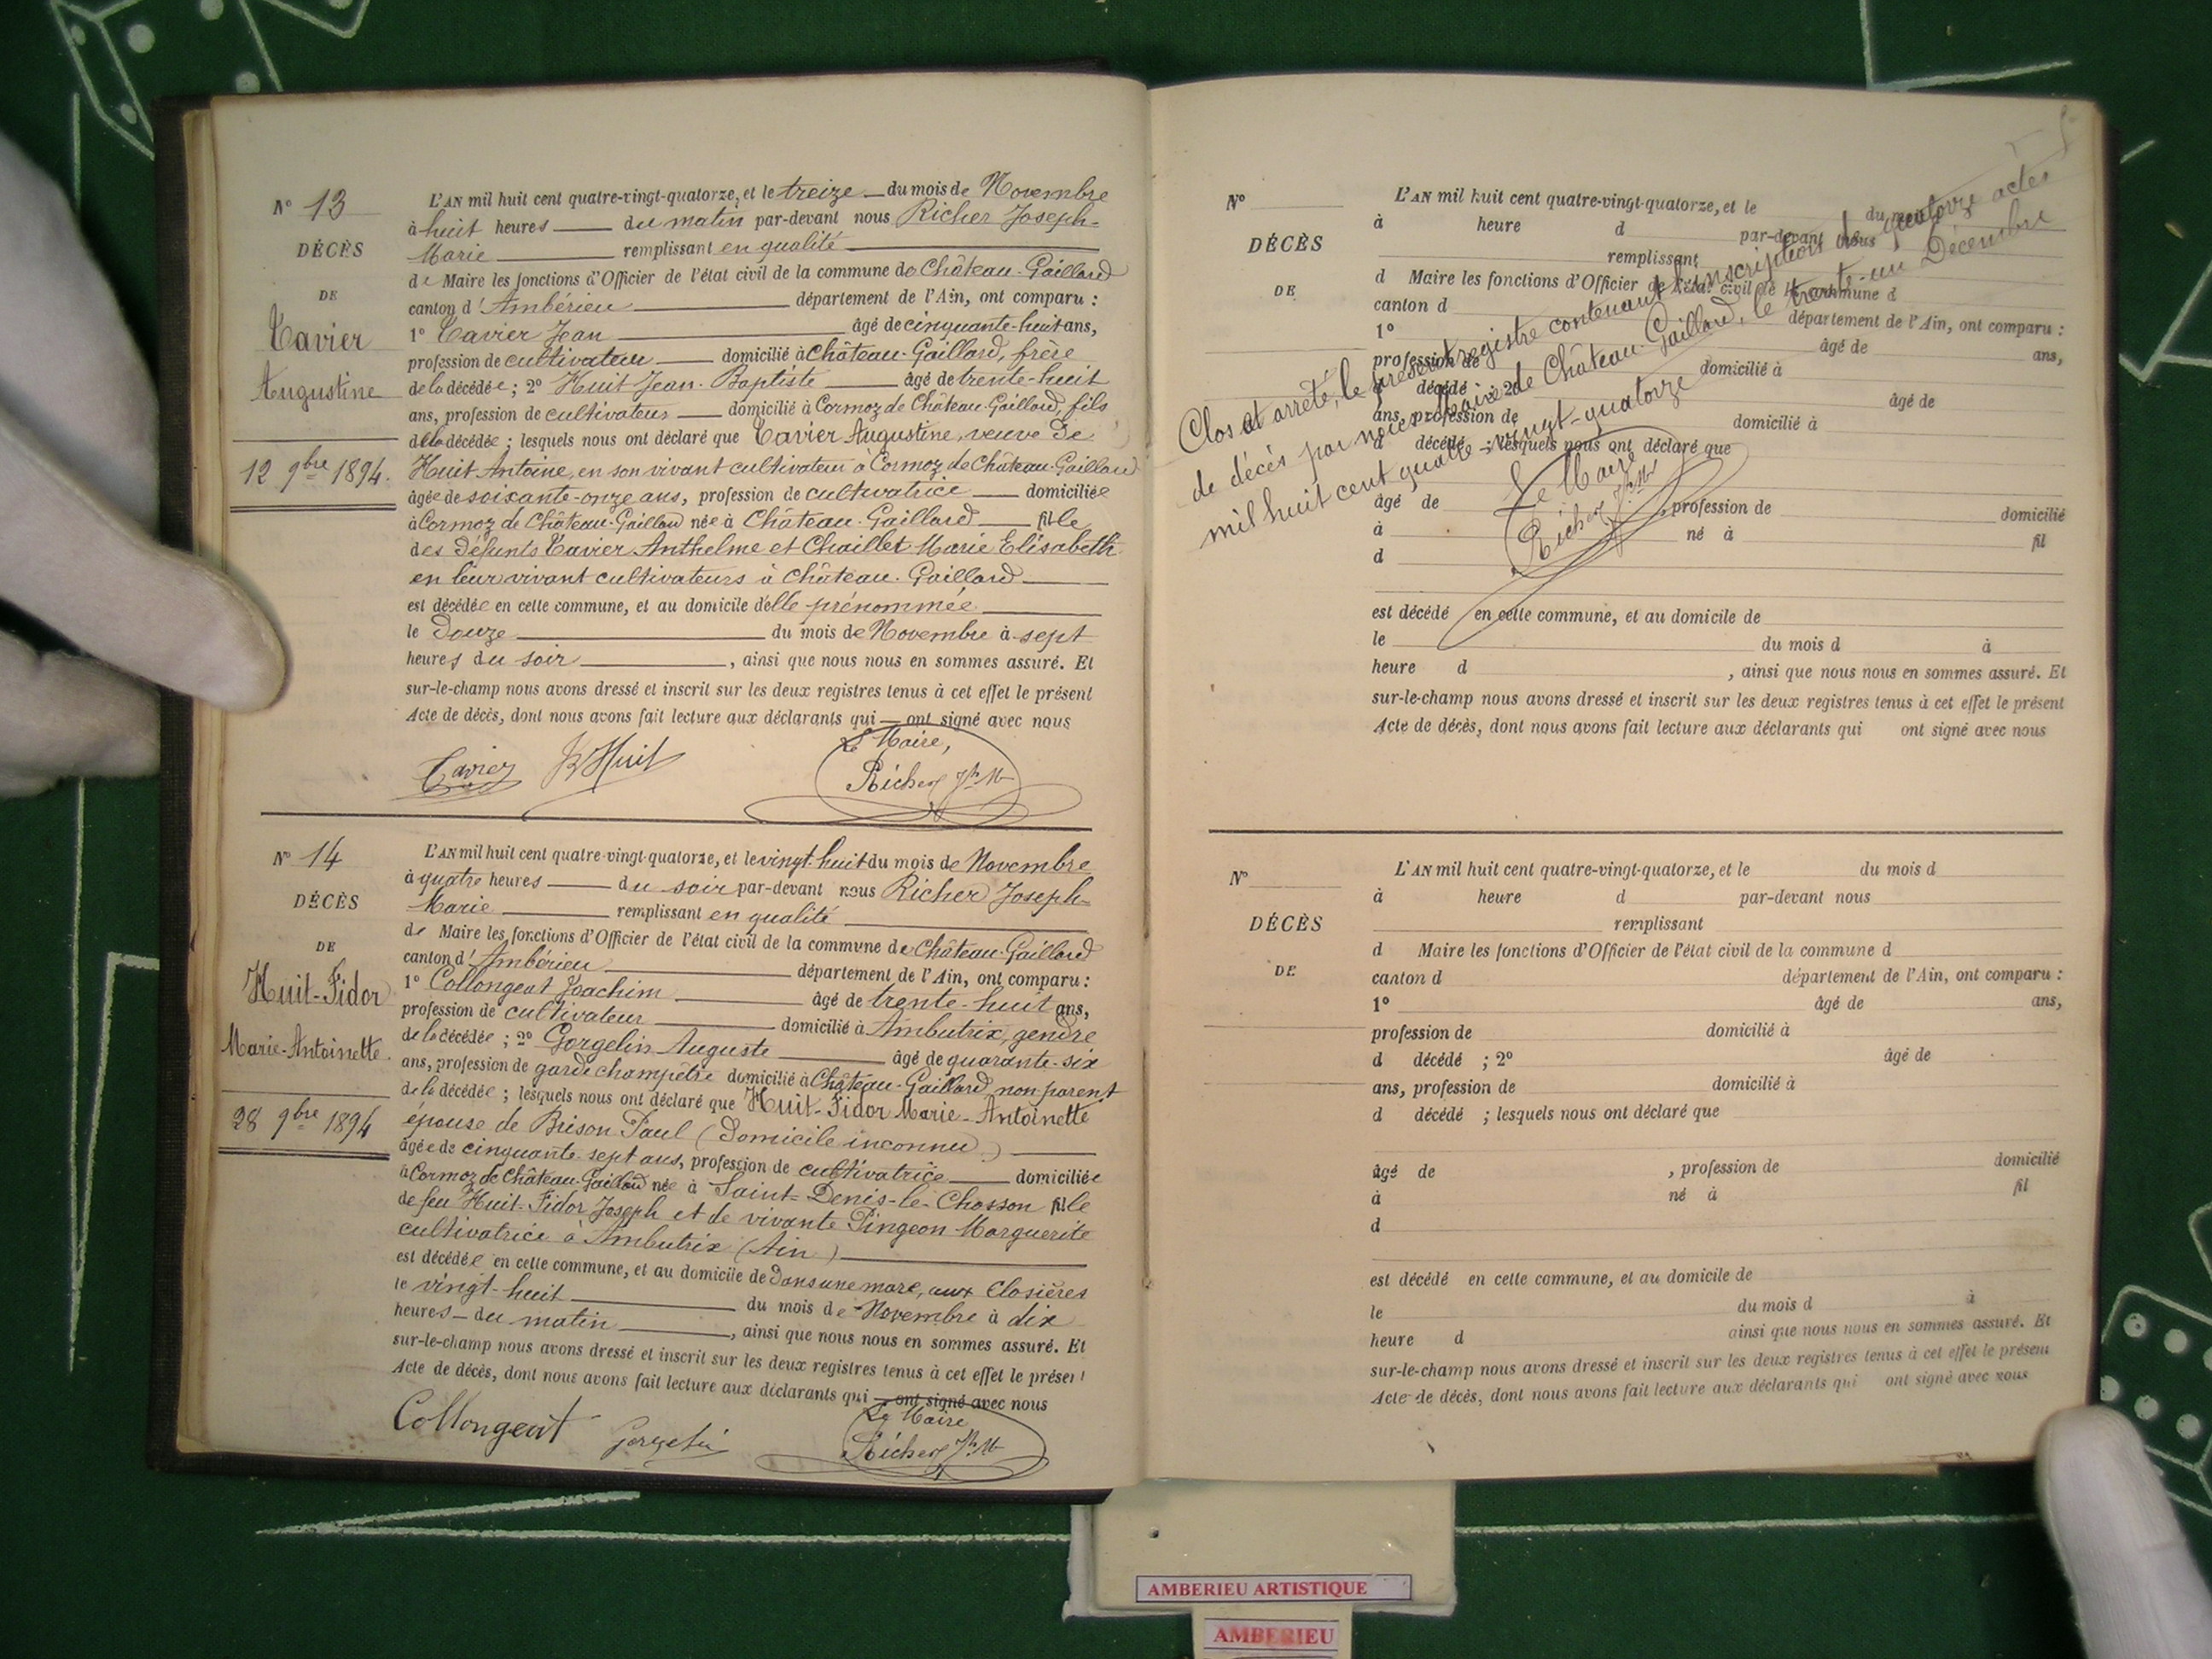 N° 13
DÉCÈS
DE
Tavier
Augustine
12 9bre 1894.
L'AN mil huit cent quatre-vingt-quatorze, et le treize du mois de Novembre
à huit heures du matin par-devant nous Richer Joseph-
Marie remplissant en qualité
de Maire les fonctions d'Officier de l'état civil de la commune de Château-Gaillard
canton d'Ambérieu département de l'Ain, ont comparu :
1° Tavier Jean âgé de cinquante-huit ans,
profession de cultivateur domicilié à Château-Gaillard, frère
de la décédée ; 2° Huit Jean-Baptiste âgé de trente-huit
ans, profession de cultivateur domicilié à Cormoz de Château-Gaillard, fils
de la décédée ; lesquels nous ont déclaré que Tavier Augustine, veuve de
Huit Antoine, en son vivant cultivateur à Cormoz de Château-Gaillard
âgée de soixante-onze ans, profession de cultivatrice domiciliée
à Cormoz de Château-Gaillard née à Château-Gaillard fille
des défunts Tavier Anthelme et Chaillet Marie Elisabeth
en leur vivant cultivateurs à Château-Gaillard
est décédée en cette commune, et au domicile d'elle prénommée
le douze du mois de Novembre à sept
heures du soir , ainsi que nous nous en sommes assuré. Et
sur-le-champ nous avons dressé et inscrit sur les deux registres tenus à cet effet le présent
Acte de décès, dont nous avons fait lecture aux déclarants qui ont signé avec nous
Le Maire,
Tavier JB Huit Richer Jh M
N° 14
DÉCÈS
DE
Huit-Fidor
Marie-Antoinette.
28 9bre 1894
L'AN mil huit cent quatre-vingt-quatorze, et le vingt-huit du mois de Novembre
à quatre heures du soir par-devant nous Richer Joseph-
Marie remplissant en qualité
de Maire les fonctions d'Officier de l'état civil de la commune de Château-Gaillard
canton d'Ambérieu département de l'Ain, ont comparu :
1° Collongeat Joachim âgé de trente-huit ans,
profession de cultivateur domicilié à Ambutrix, gendre
de la décédée ; 2° Gorgelin Auguste âgé de quarante-six
ans, profession de garde champêtre domicilié à Château-Gaillard non parent
de la décédée ; lesquels nous ont déclaré que Huit-Fidor Marie-Antoinette
épouse de Brison Paul (domicile inconnu)
âgée de cinquante-sept ans, profession de cultivatrice domiciliée
à Cormoz de Château-Gaillard née à Saint-Denis-le-Chosson fille
de feu Huit-Fidor Joseph et de vivante Pingeon Marguerite
cultivatrice à Ambutrix (Ain)
est décédée en cette commune, et au domicile de dans une mare, aux Closières
le vingt-huit du mois de Novembre à dix
heures du matin , ainsi que nous nous en sommes assuré. Et
sur-le-champ nous avons dressé et inscrit sur les deux registres tenus à cet effet le présent
Acte de décès, dont nous avons fait lecture aux déclarants qui ont signé avec nous
Le Maire
Collongeat Gorgelin Richer Jh M
N°
DÉCÈS
DE
L'AN mil huit cent quatre-vingt-quatorze, et le du mois d
à heure d par-devant nous
remplissant
d Maire les fonctions d'Officier de l'état civil de la commune d
canton d département de l'Ain, ont comparu :
1° âgé de ans,
profession de domicilié à
d décédé ; 2° âgé de
ans, profession de domicilié à
d décédé ; lesquels nous ont déclaré que
âgé de , profession de domicilié
à né à fil
d
est décédé en cette commune, et au domicile de
le du mois d à
heure d , ainsi que nous nous en sommes assuré. Et
sur-le-champ nous avons dressé et inscrit sur les deux registres tenus à cet effet le présent
Acte de décès, dont nous avons fait lecture aux déclarants qui ont signé avec nous
Clos et arrêté, le présent registre contenant l'inscription de quatorze actes
de décès par nous Maire de Château-Gaillard, le trente-un Décembre
mil huit cent quatre-vingt-quatorze
Le Maire
Richer Jh M
N°
DÉCÈS
DE
L'AN mil huit cent quatre-vingt-quatorze, et le du mois d
à heure d par-devant nous
remplissant
d Maire les fonctions d'Officier de l'état civil de la commune d
canton d département de l'Ain, ont comparu :
1° âgé de ans,
profession de domicilié à
d décédé ; 2° âgé de
ans, profession de domicilié à
d décédé ; lesquels nous ont déclaré que
âgé de , profession de domicilié
à né à fil
d
est décédé en cette commune, et au domicile de
le du mois d à
heure d ainsi que nous nous en sommes assuré. Et
sur-le-champ nous avons dressé et inscrit sur les deux registres tenus à cet effet le présent
Acte de décès, dont nous avons fait lecture aux déclarants qui ont signé avec nous
AMBERIEU ARTISTIQUE
AMBERIEU